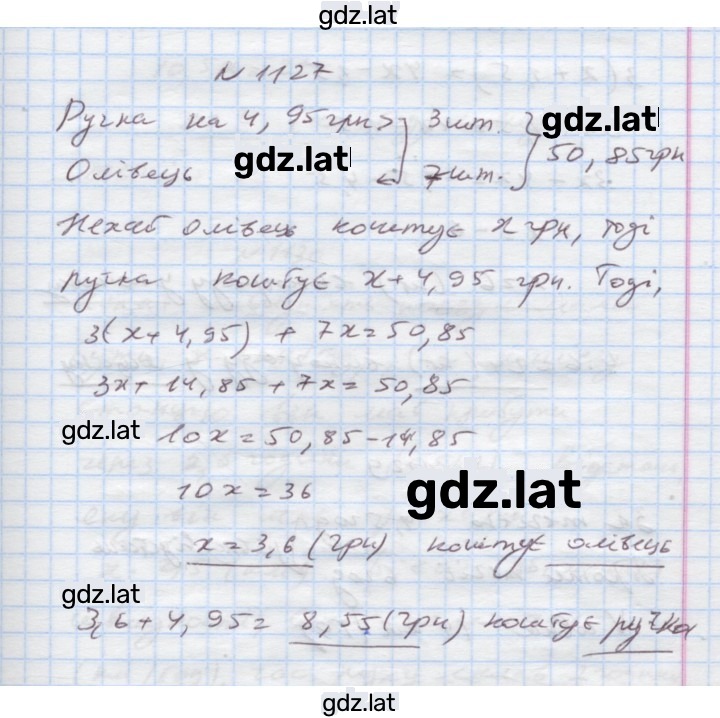 gdz.lat
N 1127
Ручка на 4,95грн> 3 шт. gdz.lat
Олівець gdz.lat 7 шт. 50,85грн
Нехай олівець коштує x грн, тоді
ручка коштує x+4,95 грн. Тоді,
3(x+4,95) + 7x=50,85
3x+14,85+7x=50,85
gdz.lat 10x=50,85-14,85
10x=36 gdz.lat
x=3,6 (грн) коштує олівець
gdz.lat
3,6+4,95= 8,55(грн) коштує ручка
gdz.lat